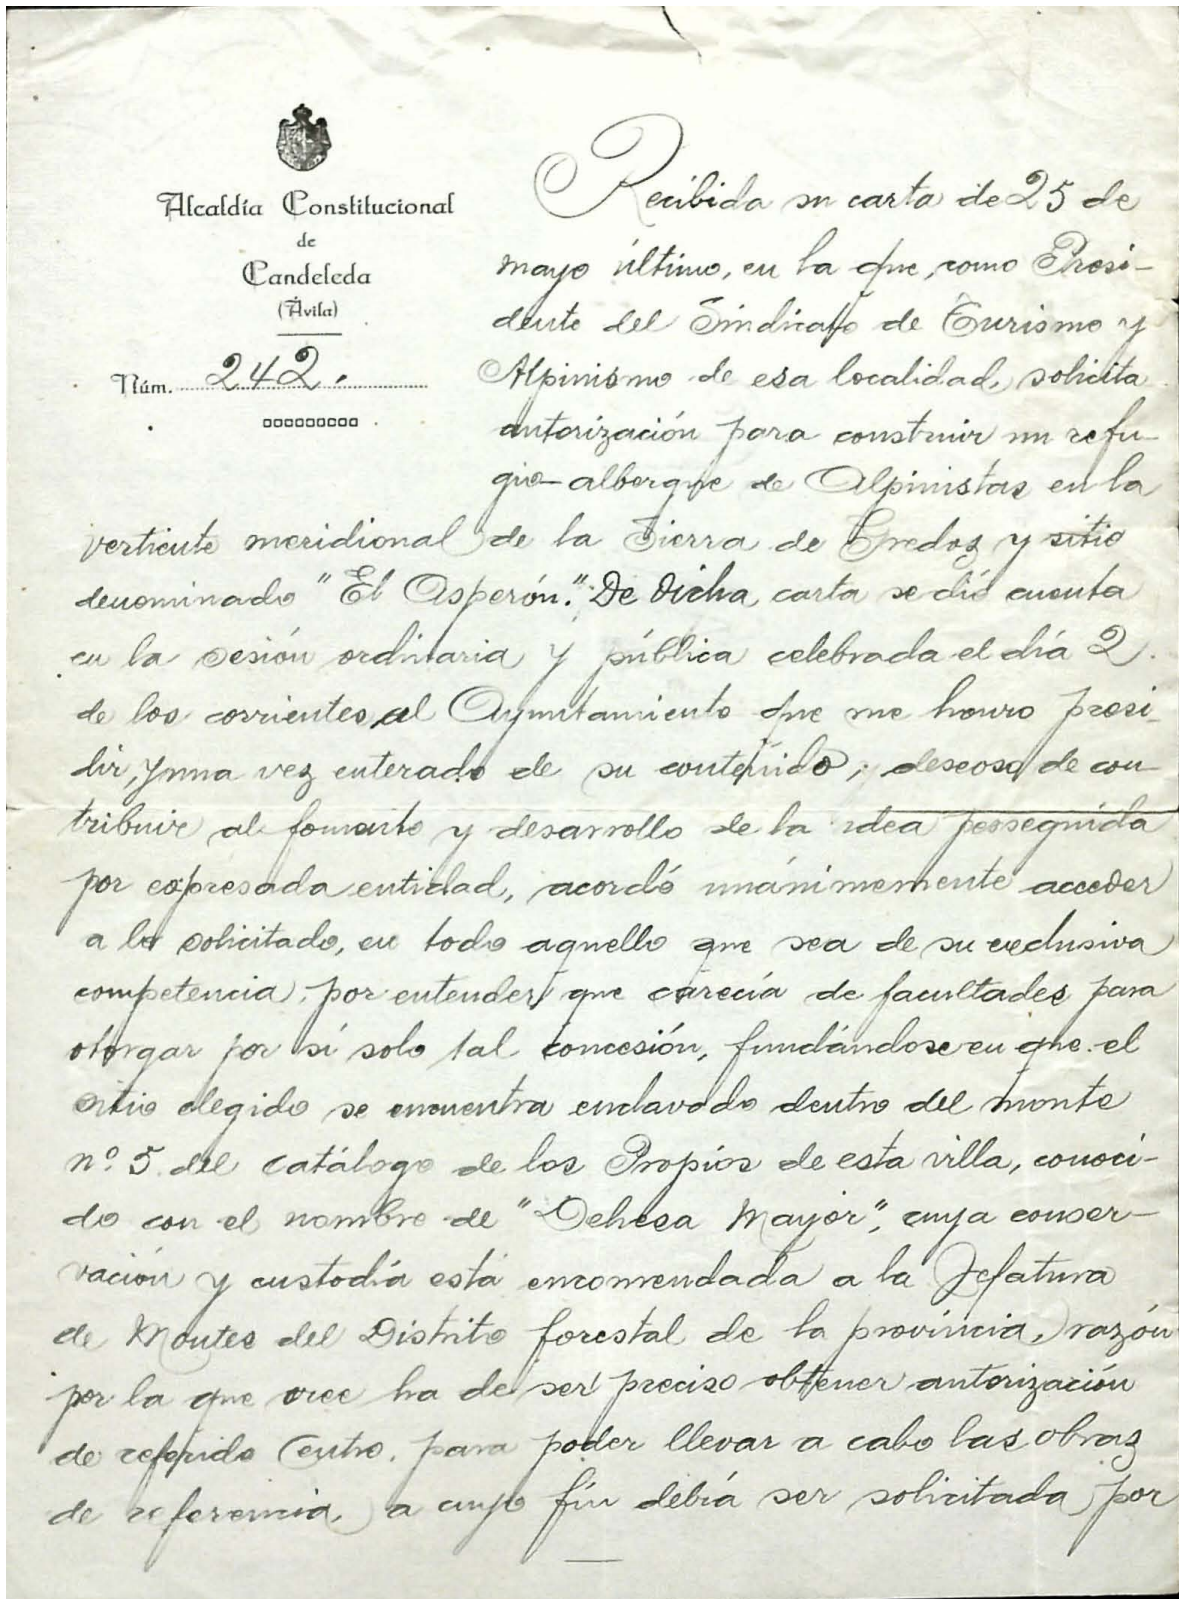 Alcaldía Constitucional
de
Candeleda
(Ávila)
Núm. 242.
Recibida su carta de 25 de
mayo último, en la que, como Presi-
dente del Sindicato de Turismo y
Alpinismo de esa localidad, solicita
autorización para construir un refu-
gio-albergue de Alpinistas en la
vertiente meridional de la Sierra de Gredos y sitio
denominado "El Asperón". De dicha carta se dió cuenta
en la sesión ordinaria y pública celebrada el día 2
de los corrientes, al Ayuntamiento que me honro presi-
dir, y una vez enterado de su contenido; deseoso de con-
tribuir al fomento y desarrollo de la idea perseguida
por expresada entidad, acordó unánimemente acceder
a lo solicitado, en todo aquello que sea de su exclusiva
competencia, por entender que carecía de facultades para
otorgar por sí solo tal concesión, fundándose en que el
sitio elegido se encuentra enclavado dentro del monte
nº 5 del catálogo de los Propios de esta villa, conoci-
do con el nombre de "Dehesa Mayor", cuya conser-
vación y custodía está encomendada a la Jefatura
de Montes del Distrito forestal de la provincia, razón
por la que cree ha de ser preciso obtener autorización
de referido Centro, para poder llevar a cabo las obras
de referencia, a cuyo fín debía ser solicitada por